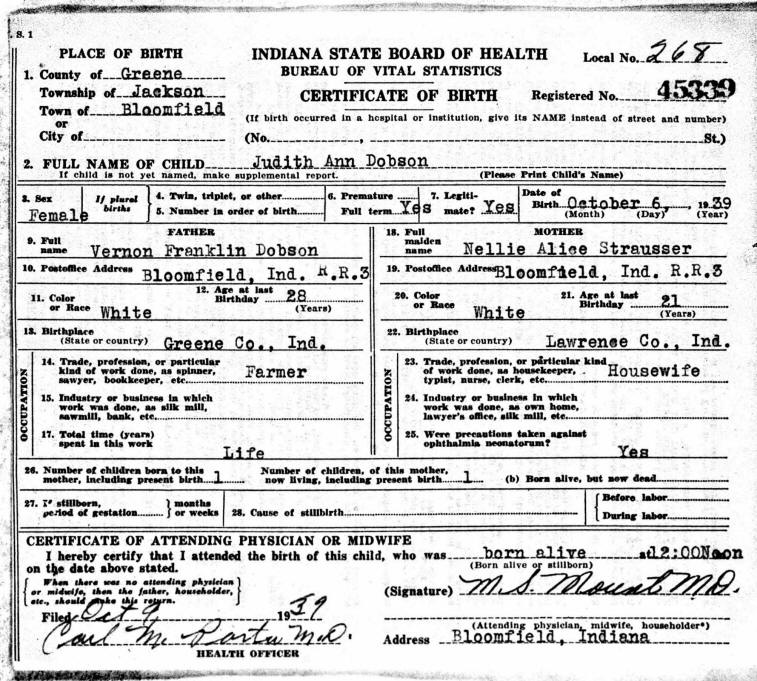 S. 1
PLACE OF BIRTH
1. County of Greene
Township of Jackson
Town of Bloomfield
or
City of
INDIANA STATE BOARD OF HEALTH
BUREAU OF VITAL STATISTICS
CERTIFICATE OF BIRTH
Local No. 268
Registered No. 45339
(If birth occurred in a hospital or institution, give its NAME instead of street and number)
(No. , St.)
2. FULL NAME OF CHILD Judith Ann Dobson
If child is not yet named, make supplemental report. (Please Print Child's Name)
3. Sex
Female
If plural
births
4. Twin, triplet, or other
5. Number in order of birth
6. Premature
Full term Yes
7. Legiti-
mate? Yes
Date of
Birth October 6, 1939
(Month) (Day) (Year)
FATHER
9. Full
name Vernon Franklin Dobson
10. Postoffice Address Bloomfield, Ind. R.R.3
11. Color
or Race White
12. Age at last
Birthday 28
(Years)
13. Birthplace
(State or country) Greene Co., Ind.
OCCUPATION
14. Trade, profession, or particular
kind of work done, as spinner,
sawyer, bookkeeper, etc. Farmer
15. Industry or business in which
work was done, as silk mill,
sawmill, bank, etc.
17. Total time (years)
spent in this work Life
MOTHER
18. Full
maiden
name Nellie Alice Strausser
19. Postoffice Address Bloomfield, Ind. R.R.3
20. Color
or Race White
21. Age at last
Birthday 21
(Years)
22. Birthplace
(State or country) Lawrence Co., Ind.
OCCUPATION
23. Trade, profession, or particular kind
of work done, as housekeeper,
typist, nurse, clerk, etc. Housewife
24. Industry or business in which
work was done, as own home,
lawyer's office, silk mill, etc.
25. Were precautions taken against
ophthalmia neonatorum? Yes
26. Number of children born to this
mother, including present birth 1
Number of children, of this mother,
now living, including present birth 1
(b) Born alive, but now dead
27. If stillborn,
period of gestation
months
or weeks
28. Cause of stillbirth
Before labor
During labor
CERTIFICATE OF ATTENDING PHYSICIAN OR MIDWIFE
I hereby certify that I attended the birth of this child, who was born alive at 12:00Noon
(Born alive or stillborn)
on the date above stated.
When there was no attending physician
or midwife, then the father, householder,
etc., should make this return.
(Signature) M. S. Mount M.D.
(Attending physician, midwife, householder*)
Filed Oct 9 1939
Carl M. M.D.
HEALTH OFFICER
Address Bloomfield, Indiana